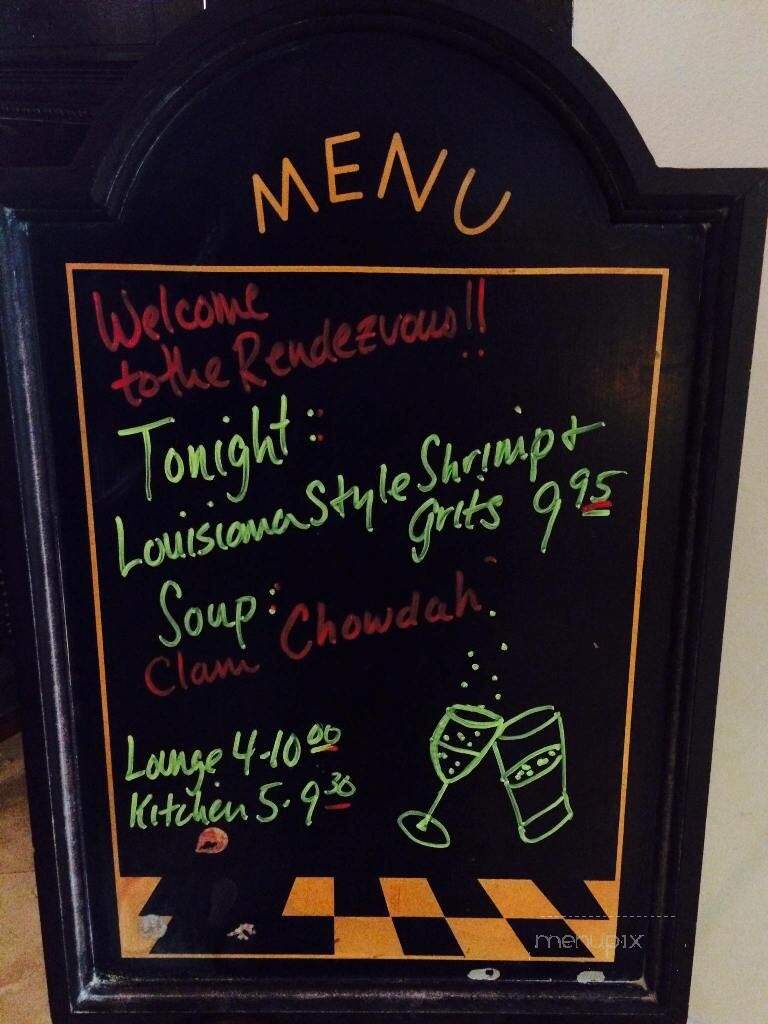 MENU
Welcome
to the Rendezvous!!
Tonight:
Louisiana Style Shrimp +
grits 9 95
Soup:
Clam Chowdah.
Lounge 4-10 00
Kitchen 5-9 30
menupix